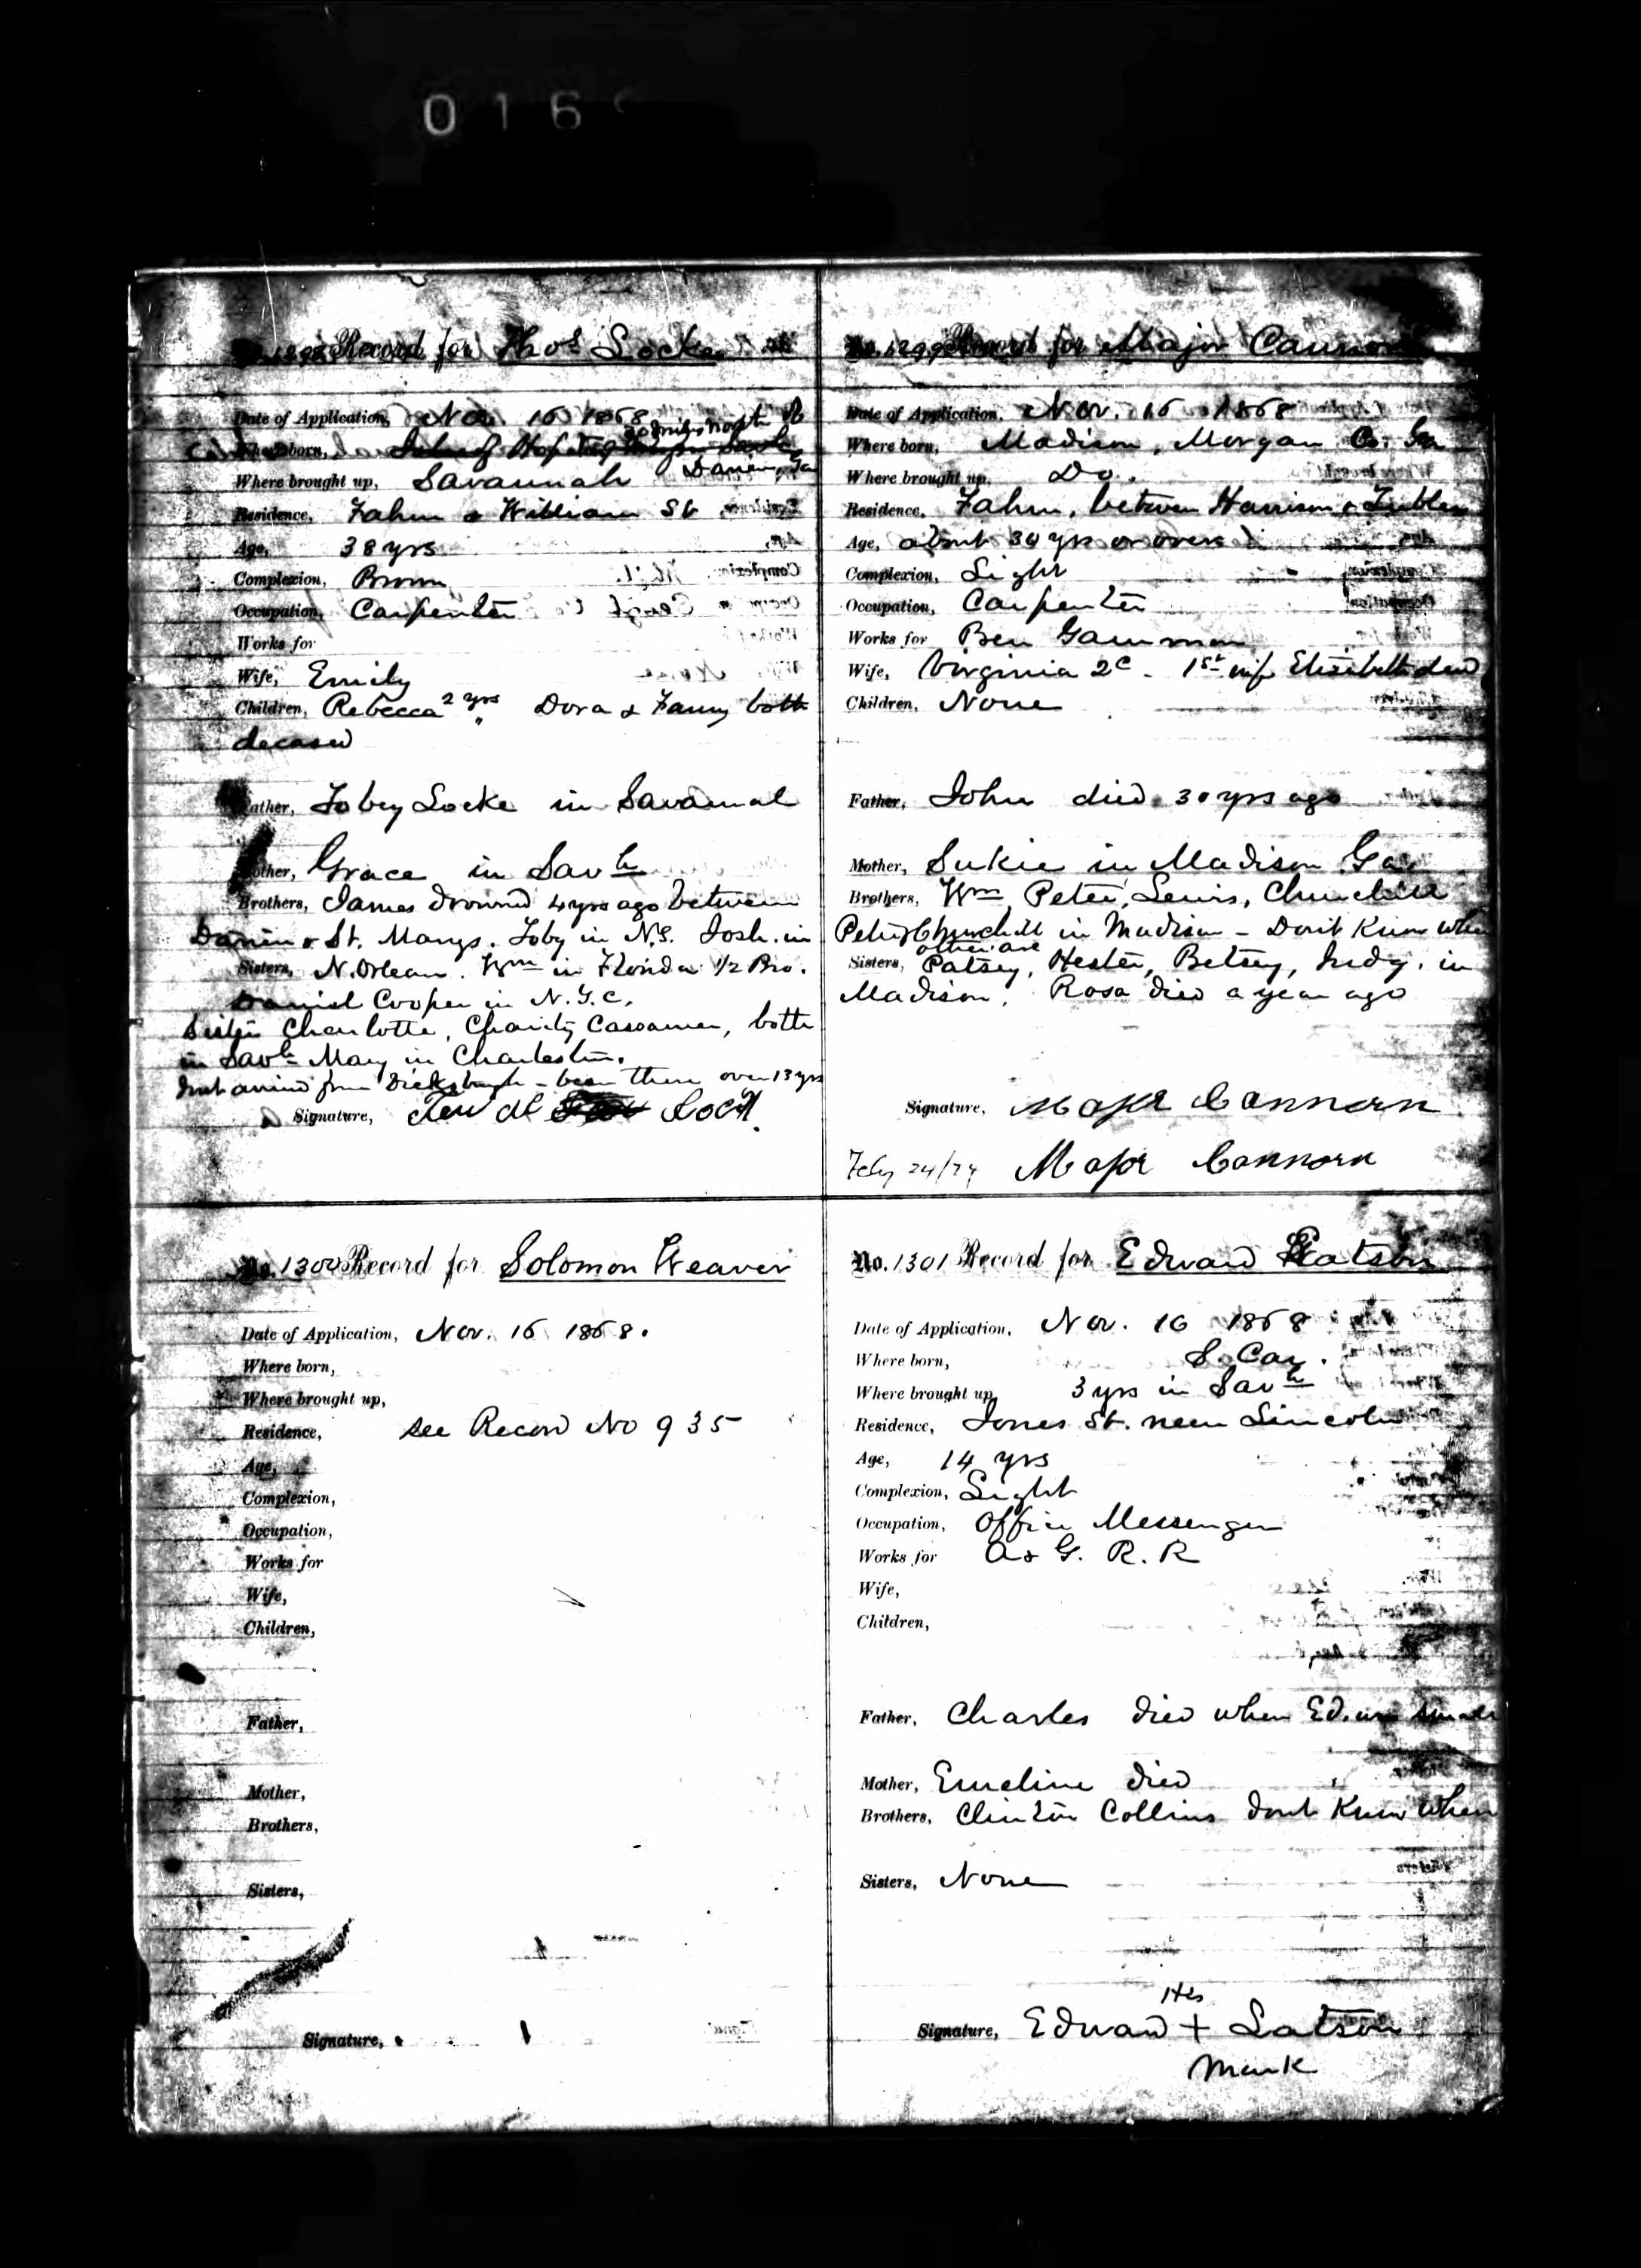 016
No. 1298 Record for Thos Locke
Date of Application, Nov. 16 1868
30 miles north of
Where born, Isle of
Darien, Ga
Where brought up, Savannah
Residence, Fahm & William St
Age, 38 yrs
Complexion, Brown
Occupation, Carpenter
Works for
Wife, Emily
Children, Rebecca 2 yrs Dora & Fanny both
deceased
Father, Tobey Locke in Savannah
Mother, Grace in Savh
Brothers, James drowned 4 yrs ago between
Darien & St. Marys. Toby in N.S. Josh. in
Sisters, N. Orlean. Wm in Florida 1/2 Bro.
Daniel Cooper in N.Y.C.
Sister Charlotte, Charity both
in Savh Mary in Charleston.
Just arrived from - been there over 13 yrs
Signature, Lock
No. 1299 Record for Major Cannon
Date of Application, Nov. 16 1868
Where born, Madison, Morgan Co. Ga
Where brought up, Do.
Residence, Fahm, between Harrison &
Age, about 30 yrs or over
Complexion, Light
Occupation, Carpenter
Works for Ben Gammon
Wife, Virginia 2d - 1st wife Elizabeth dead
Children, None
Father, John died 30 yrs ago
Mother, Sukie in Madison Ga
Brothers, Wm, Peter, Lewis, Churchill
Peter & Churchill in Madison - Dont Know where
others are
Sisters, Patsey, Hester, Betsey, Judy, in
Madison, Rosa died a year ago
Signature, Major Cannorn
Feby 24/74 Major Cannorn
No. 1300 Record for Solomon Weaver
Date of Application, Nov. 16 1868.
Where born,
Where brought up,
Residence, see Record No 935
Age,
Complexion,
Occupation,
Works for
Wife,
Children,
Father,
Mother,
Brothers,
Sisters,
Signature,
No. 1301 Record for Edward Latson
Date of Application, Nov. 16 1868
Where born, S. Car.
Where brought up, 3 yrs in Savh
Residence, Jones St. near Lincoln
Age, 14 yrs
Complexion, Light
Occupation, Office Messenger
Works for A & G. R. R
Wife,
Children,
Father, Charles died when Ed. was small
Mother, Emeline died
Brothers, Clinton Collins dont Know where
Sisters, None
His
Signature, Edward + Latson
Mark